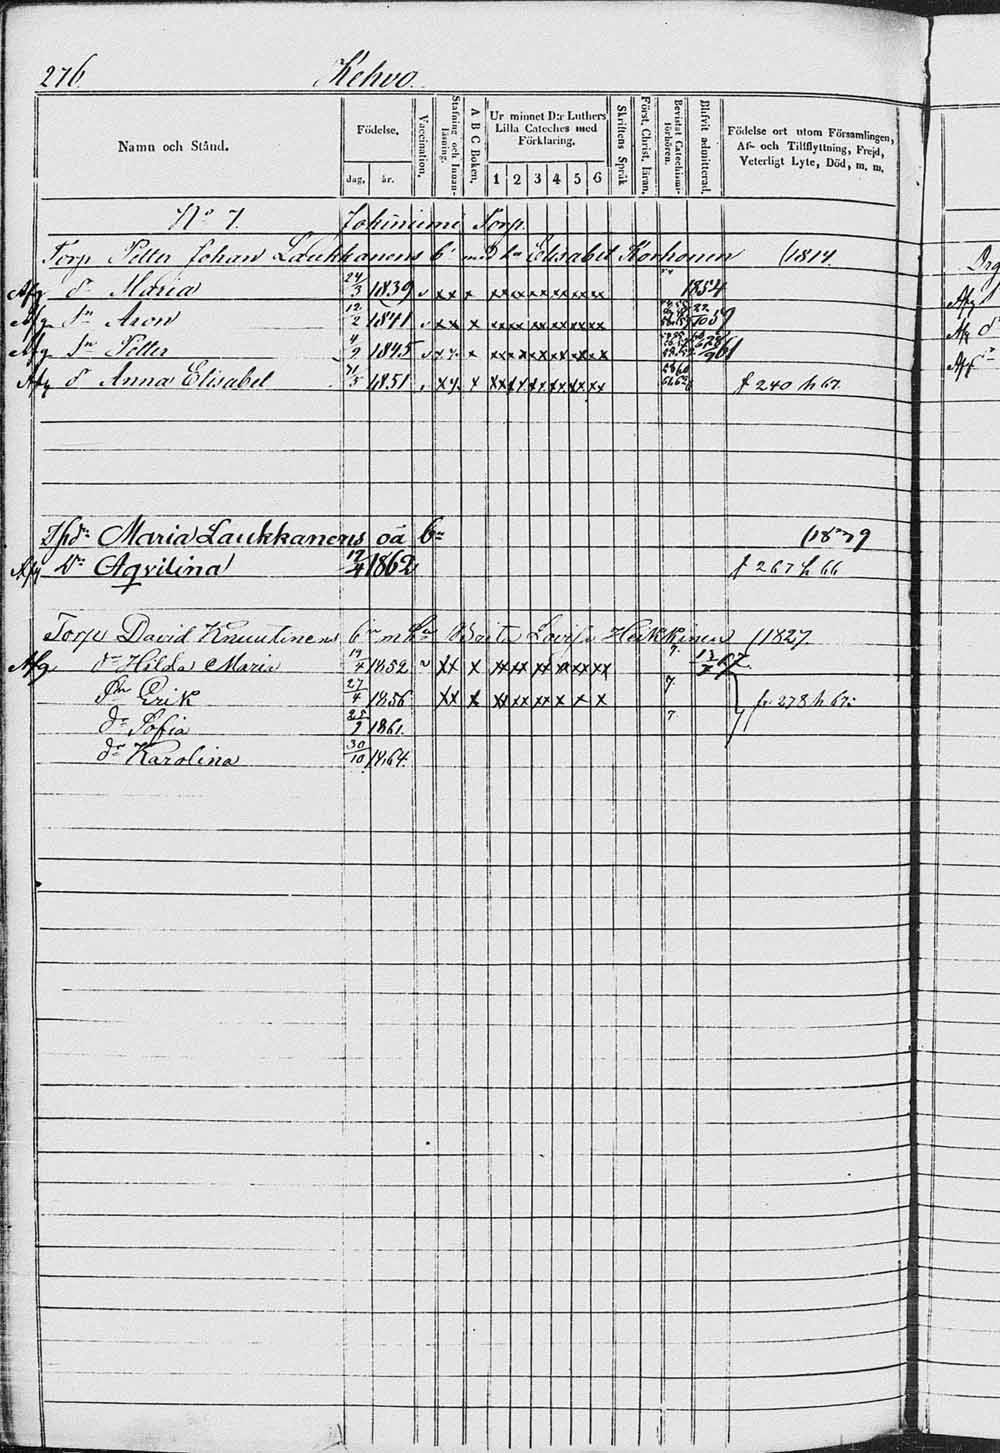 276. Kehvo.
Namn och Stånd.
Födelse.
dag. år.
Vaccination.
Stafning och Innanläsning.
A B C Boken.
Ur minnet D:r Luthers
Lilla Cateches med
Förklaring.
1 2 3 4 5 6
Skriftens Språk
Först. Christ. läran.
Bevistat Catechismiförhören.
Blifvit admitterad.
Födelse ort utom Församlingen,
Af- och Tillflyttning, Frejd,
Veterligt Lyte, Död, m. m.
No 7. Jokiniemi Torp.
Torp Petter Johan Laukkanens bn m Elisabet Korhonen 1814.
Afg dr Maria 24/3 1839 v xx x xx xx xx xx xx xx 1854
Afg Sn Aron 12/2 1841 v xx x xx xx xx xx xx xx 22/10 59
Afg Sn Petter 4/9 1845 v xx x xx xx xx xx xx xx
Afg dr Anna Elisabet 1851 xx x xx xx xx xx xx xx f 240 h 67.
Maria Laukkanens oä bn
Afg dr Aqvilina 12/4 1862 f 267 h 66
Torp David Knuutinens bn m h Lovisa Heikkinen 1827.
Afg dr Hilda Maria 19/4 1852 v xx x xx xx xx x xx xx 7.
Sn Erik 27/4 1856 xx x xx xx xx x x x 7. fr 278 h 67.
dr Sofia 25/9 1861. 7
dr Karolina 30/10 1864.